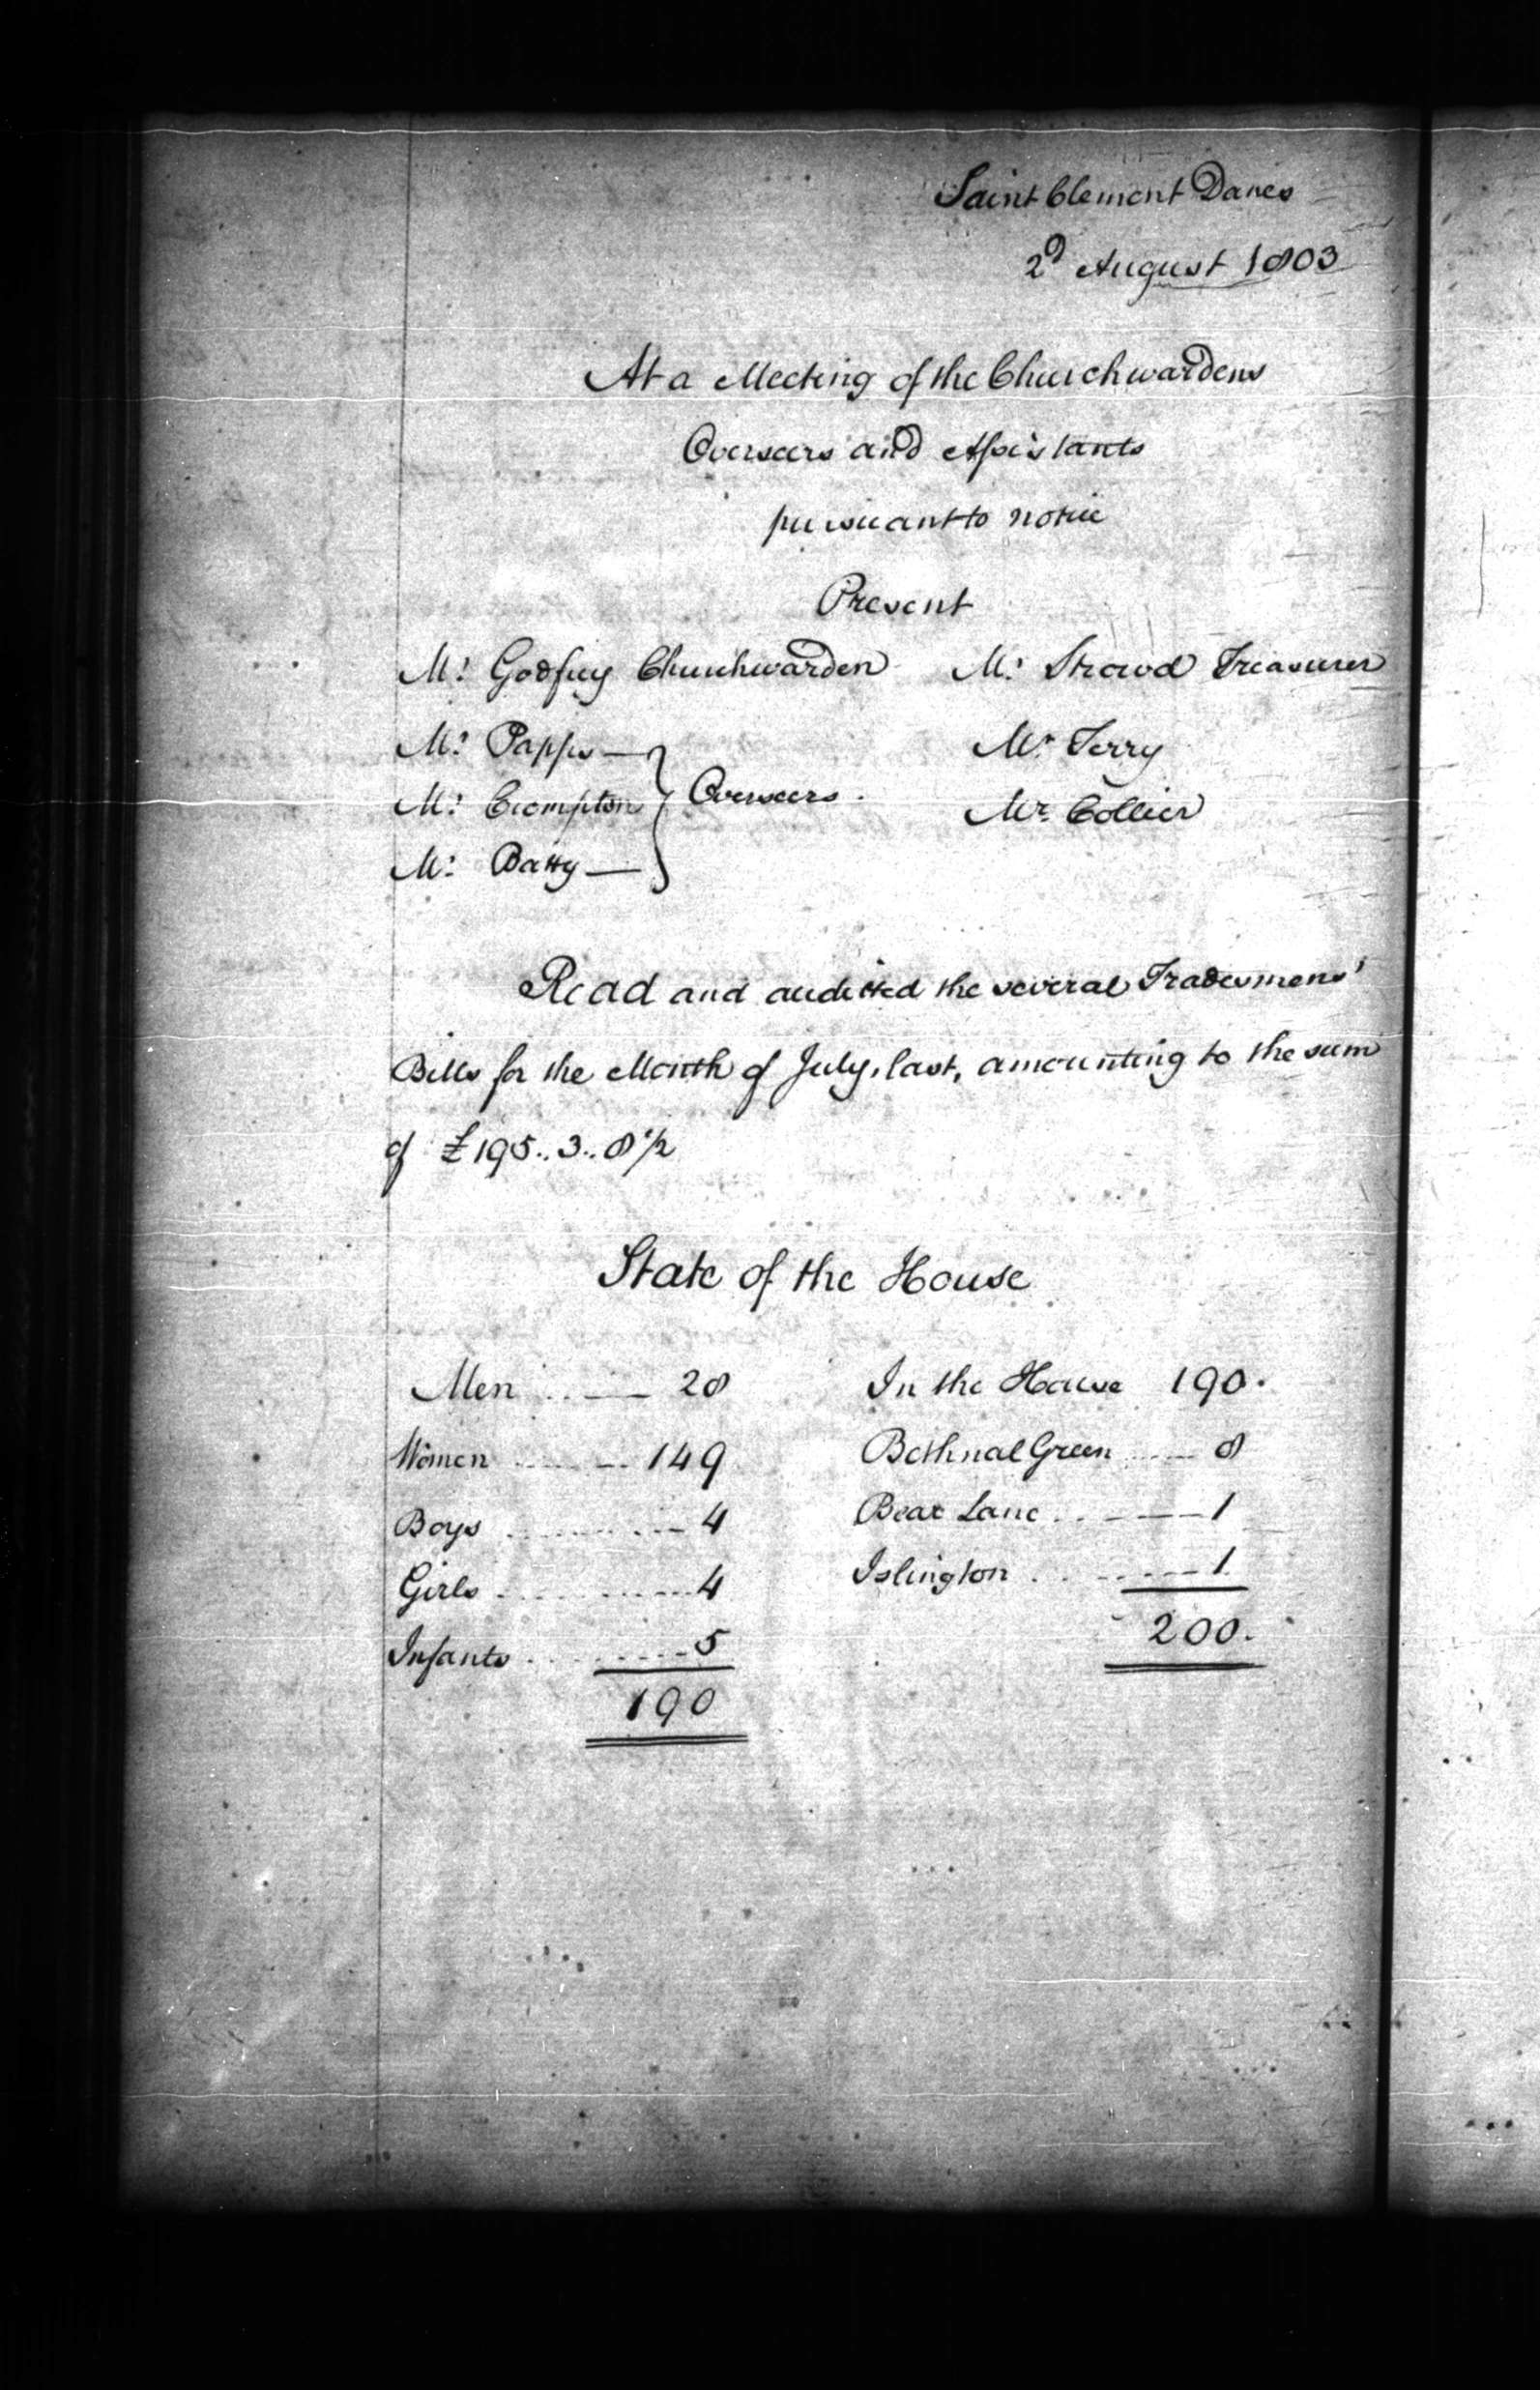 Saint Clement Danes
2d August 1803
At a Meeting of the Churchwardens
Overseers and Assistants
pursuant to notice
Present
Mr Godfrey Churchwarden Mr Strowd Treasurer
Mr Papps Mr Terry
Mr Crompton Overseers. Mr Collier
Mr Batty
Read and auditted the several Tradesmens'
Bills for the Month of July, last, amounting to the sum
of £195..3..8 1/2
State of the House
Men 28 In the House 190.
Women 149 Bethnal Green 8
Boys 4 Bear Lane 1
Girls 4 Islington 1
Infants 5 200.
190